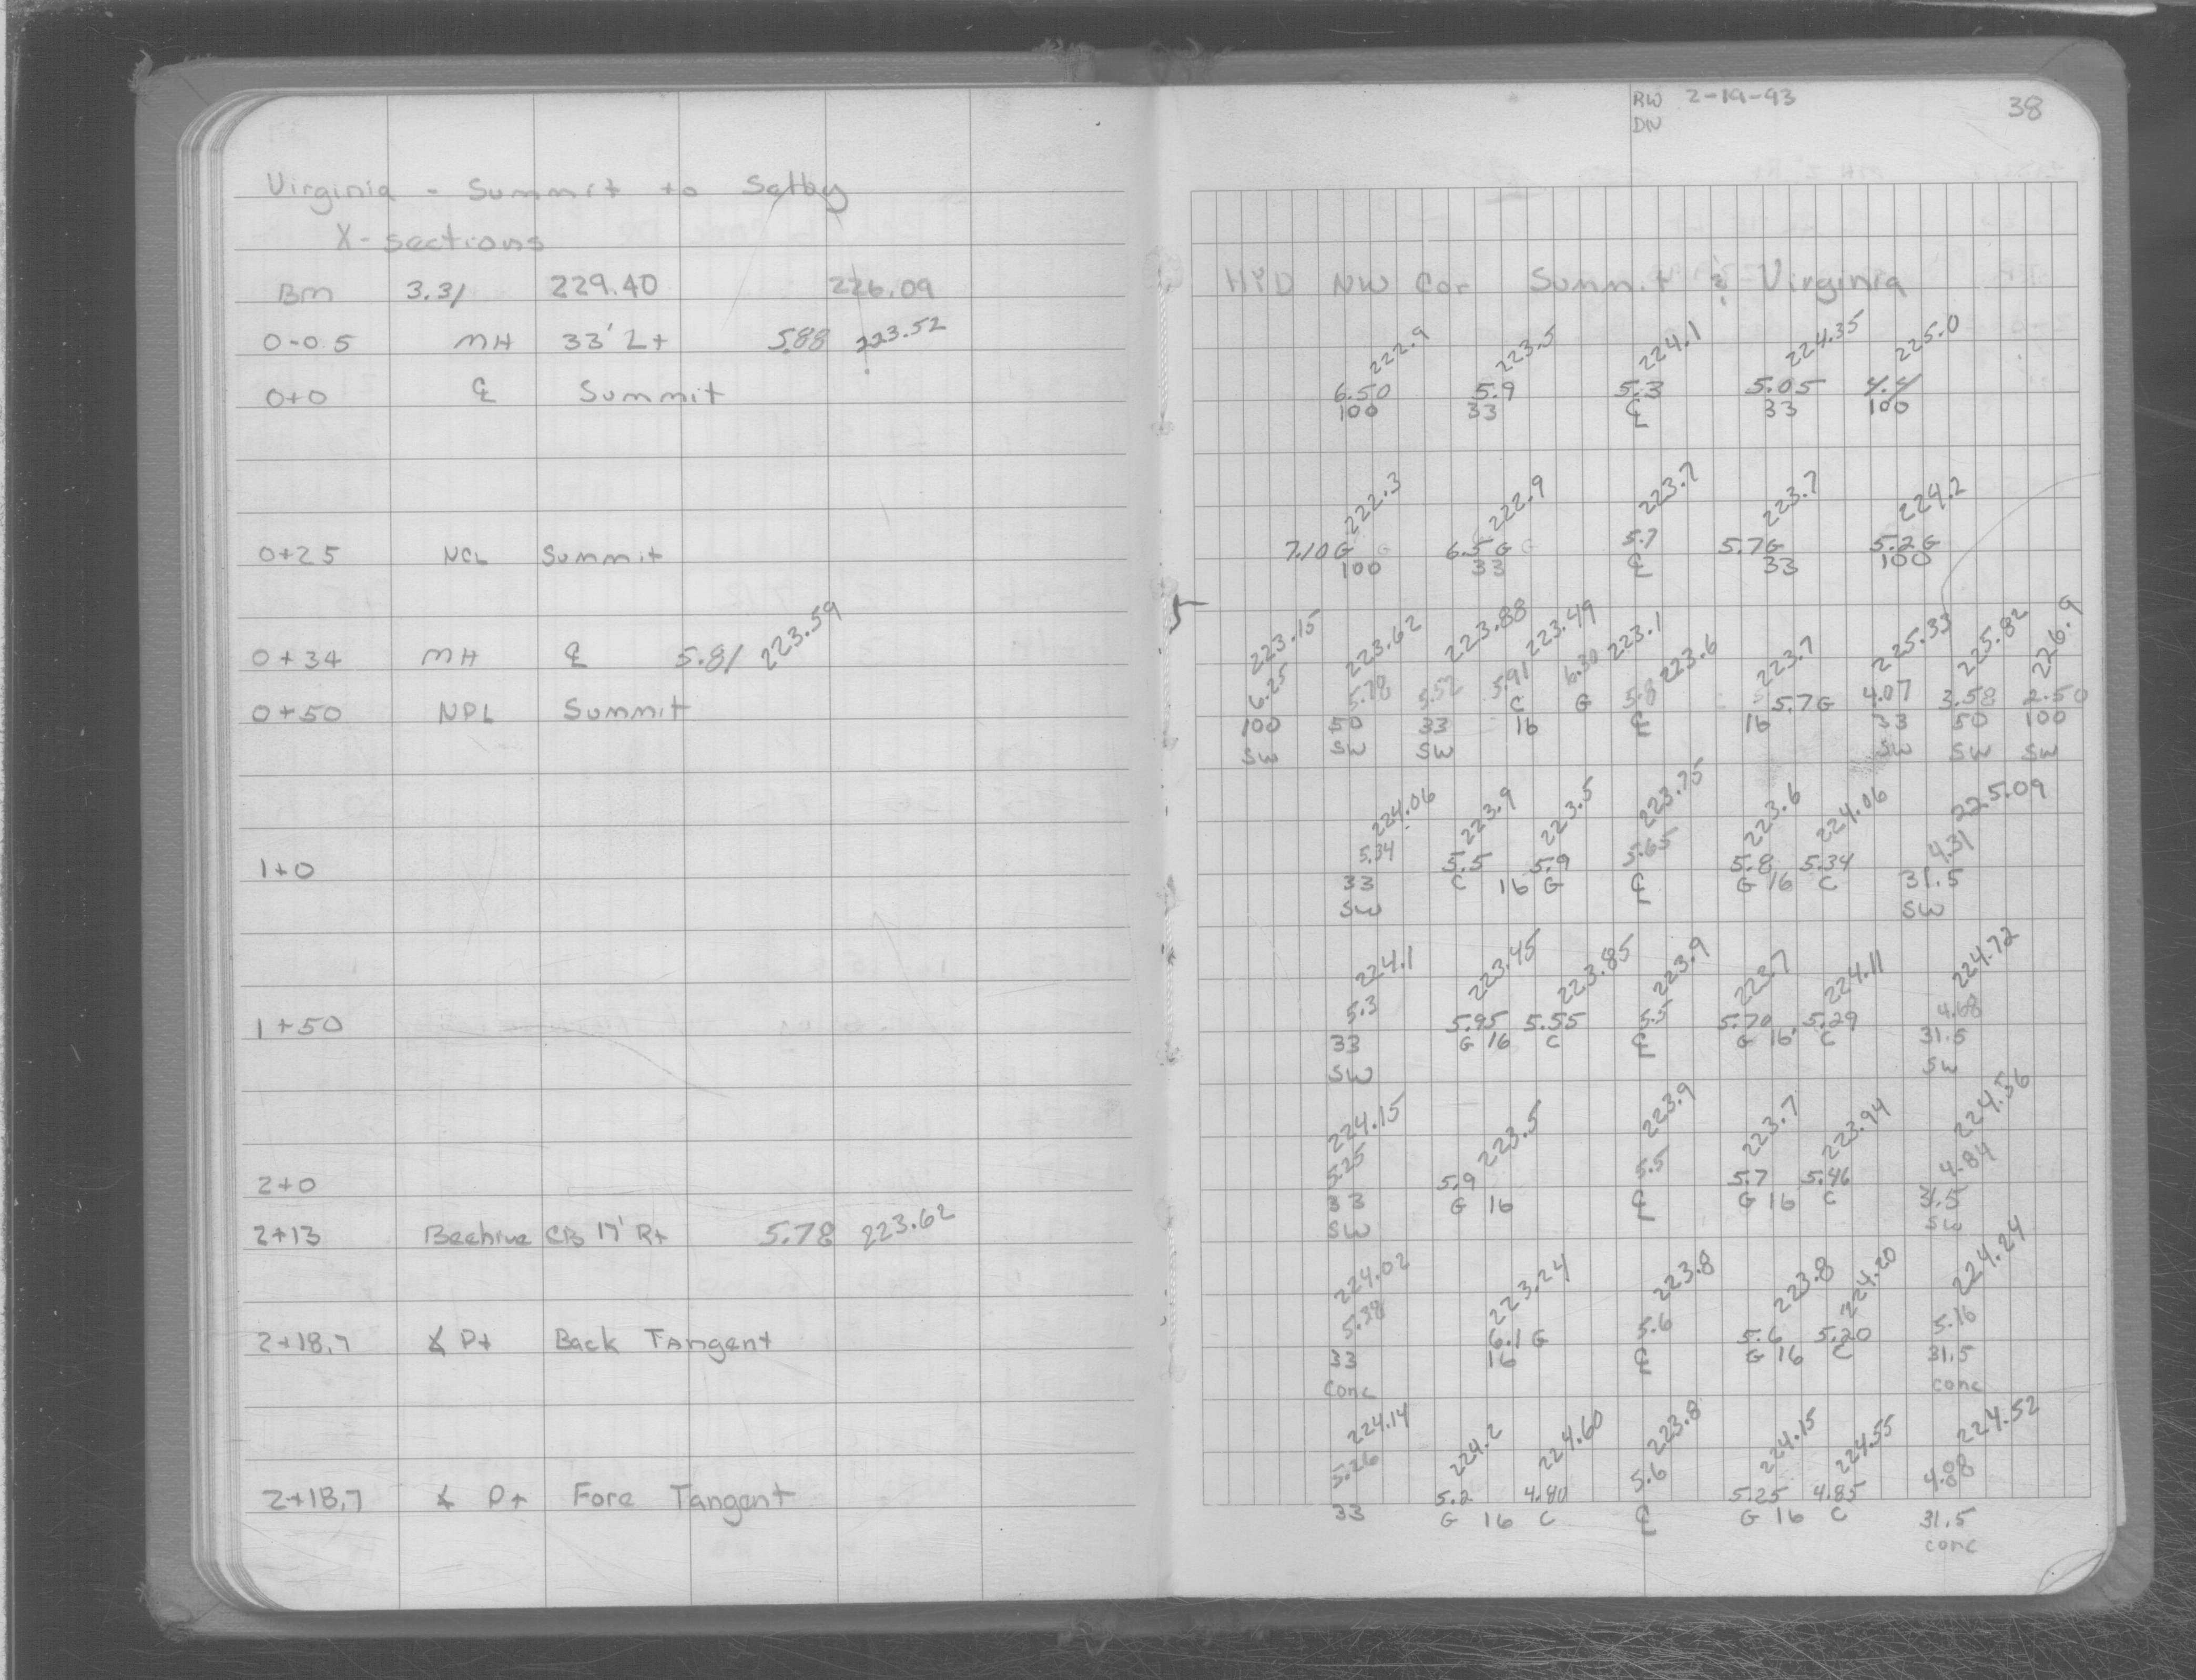 Virginia - Summit to Selby
X-sections
BM 3.31 229.40 226.09
0-0.5 MH 33' Lt 5.88 223.52
0+0 ℄ Summit
0+25 NCL Summit
0+34 MH ℄ 5.81 223.59
0+50 NPL Summit
1+0
1+50
2+0
2+13 Beehive CB 17' Rt 5.78 223.62
2+18.7 ∡ Pt Back Tangent
2+18.7 ∡ Pt Fore Tangent
RW 2-19-93 38
DN
HYD NW Cor Summit & Virginia
222.9 223.5 224.1 224.35 225.0
6.50 5.9 5.3 5.05 4.4
100 33 ℄ 33 100
222.3 222.9 223.7 223.7 224.2
7.10 G 6.5 G 5.7 5.7G 5.2 G
100 33 ℄ 33 100
223.15 223.62 223.88 223.49 223.1 223.6 223.7 225.33 225.82 226.9
6.25 5.78 5.52 5.91 6.30 5.8 5.7G 4.07 3.58 2.50
100 50 33 C 16 G ℄ 16 33 50 100
SW SW SW SW SW SW
224.06 223.9 223.5 223.75 223.6 224.06 225.09
5.34 5.5 5.9 5.65 5.8 5.34 4.31
33 C 16 G ℄ G 16 C 31.5
SW SW
224.1 223.45 223.85 223.9 223.7 224.11 224.72
5.3 5.95 5.55 5.5 5.70 5.29 4.68
33 G 16 C ℄ G 16 C 31.5
SW SW
224.15 223.5 223.9 223.7 223.94 224.56
5.25 5.9 5.5 5.7 5.46 4.84
33 G 16 ℄ G 16 C 31.5
SW SW
224.02 223.24 223.8 223.8 224.20 224.24
5.38 6.1 G 5.6 5.6 5.20 5.16
33 16 ℄ G 16 C 31.5
Conc conc
224.14 224.2 224.60 223.8 224.15 224.55 224.52
5.26 5.2 4.80 5.6 5.25 4.85 4.88
33 G 16 C ℄ G 16 C 31.5
conc